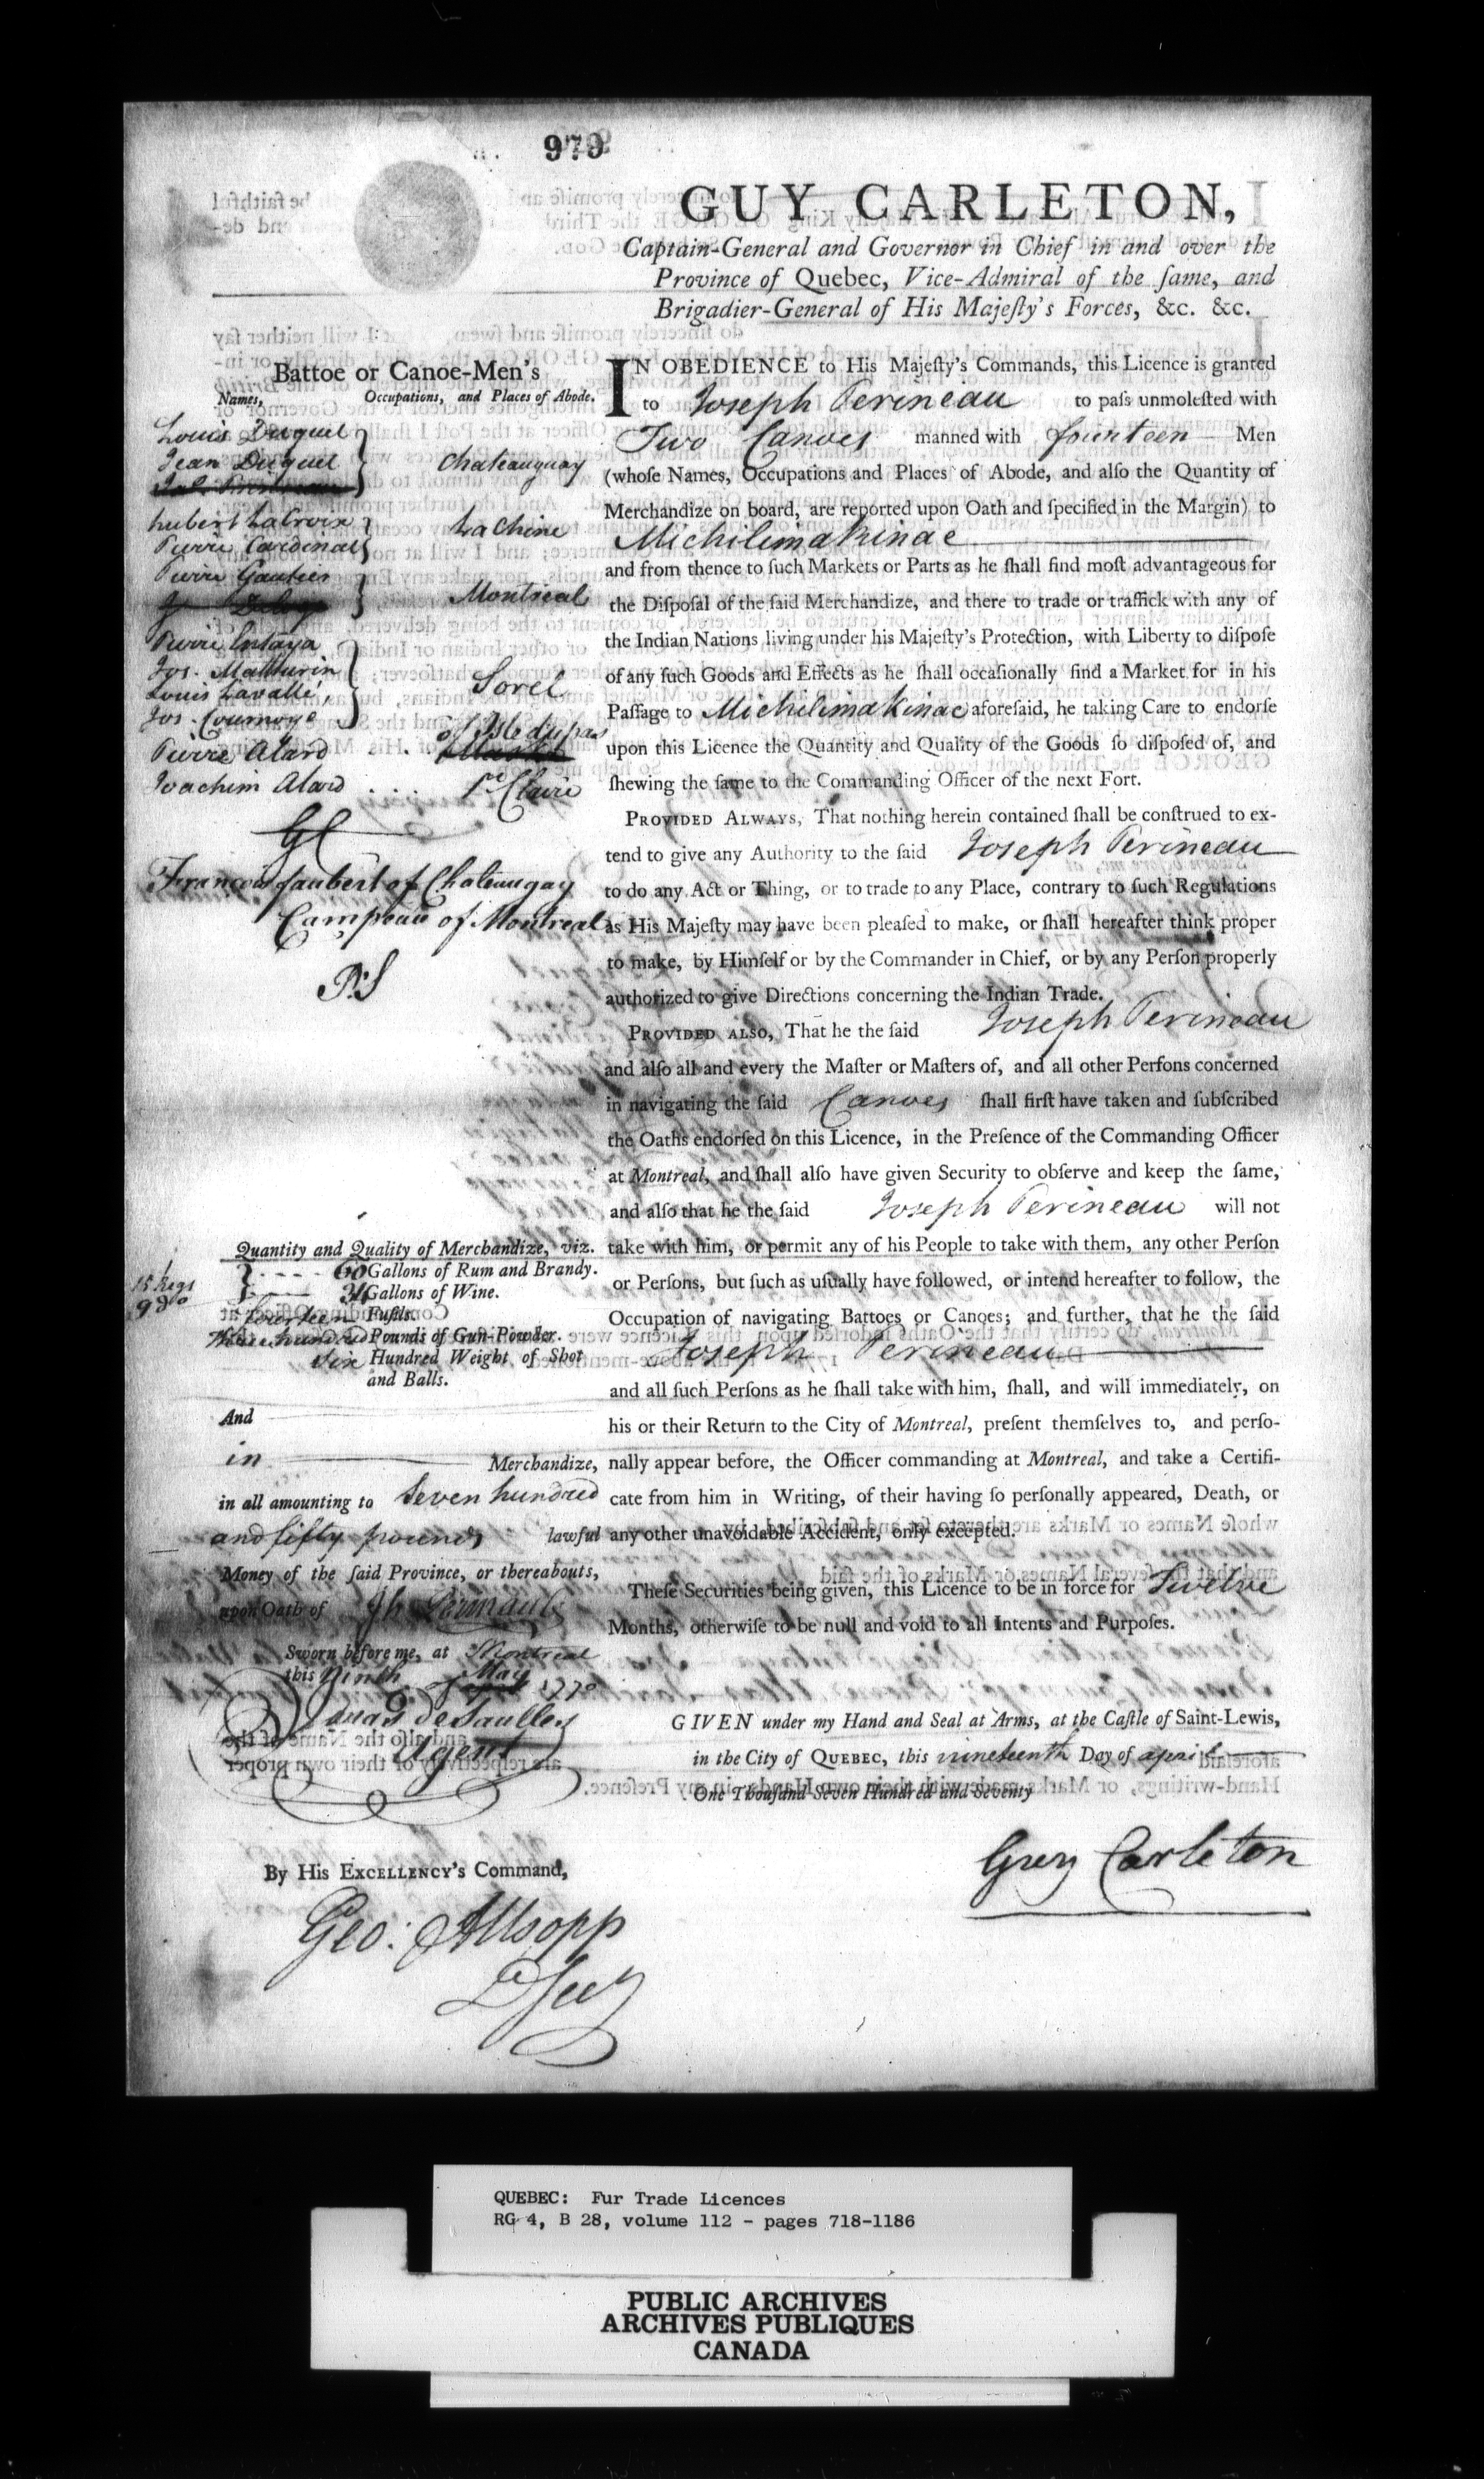 979
GUY CARLETON,
Captain-General and Governor in Chief in and over the
Province of Quebec, Vice-Admiral of the ſame, and
Brigadier-General of His Majeſty's Forces, &c. &c.
Battoe or Canoe-Men's
Names, Occupations, and Places of Abode.
Louis Duquel
Jean Duquel
Chateauguay
hubert Lalroix
Pierre Cardinal
La Chine
Pierre Gautier
Montreal
Pierre Entaya
Jos. Mathurin
Louis Lavallé
Jos. Cournoye
Sorel
Pierre Alard . of Isle dupas
Joachim Alard . . . . St Claire
GC
Francois Jaubert of Chateaugay
Campeau of Montreal
P:S
IN OBEDIENCE to His Majeſty's Commands, this Licence is granted
to Joseph Perineau to paſs unmoleſted with
Two Canoes manned with fourteen Men
(whoſe Names, Occupations and Places of Abode, and alſo the Quantity of
Merchandize on board, are reported upon Oath and ſpecified in the Margin) to
Michilimakinac
and from thence to ſuch Markets or Parts as he ſhall find moſt advantageous for
the Diſpoſal of the ſaid Merchandize, and there to trade or traffick with any of
the Indian Nations living under his Majeſty's Protection, with Liberty to diſpoſe
of any ſuch Goods and Effects as he ſhall occaſionally find a Market for in his
Paſſage to Michilimakinac aforeſaid, he taking Care to endorſe
upon this Licence the Quantity and Quality of the Goods ſo diſpoſed of, and
ſhewing the ſame to the Commanding Officer of the next Fort.
PROVIDED ALWAYS, That nothing herein contained ſhall be conſtrued to ex-
tend to give any Authority to the ſaid Joseph Perineau
to do any Act or Thing, or to trade to any Place, contrary to ſuch Regulations
as His Majeſty may have been pleaſed to make, or ſhall hereafter think proper
to make, by Himſelf or by the Commander in Chief, or by any Perſon properly
authorized to give Directions concerning the Indian Trade.
PROVIDED ALSO, That he the ſaid Joseph Perineau
and alſo all and every the Maſter or Maſters of, and all other Perſons concerned
in navigating the ſaid Canoes ſhall firſt have taken and ſubſcribed
the Oaths endorſed on this Licence, in the Preſence of the Commanding Officer
at Montreal, and ſhall alſo have given Security to obſerve and keep the ſame,
and alſo that he the ſaid Joseph Perineau will not
take with him, or permit any of his People to take with them, any other Perſon
or Perſons, but ſuch as uſually have followed, or intend hereafter to follow, the
Occupation of navigating Battoes or Canoes; and further, that he the ſaid
Joseph Perineau
and all ſuch Perſons as he ſhall take with him, ſhall, and will immediately, on
his or their Return to the City of Montreal, preſent themſelves to, and perſo-
nally appear before, the Officer commanding at Montreal, and take a Certifi-
cate from him in Writing, of their having ſo perſonally appeared, Death, or
any other unavoidable Accident, only excepted.
Theſe Securities being given, this Licence to be in force for Twelve
Months, otherwiſe to be null and void to all Intents and Purpoſes.
Quantity and Quality of Merchandize, viz.
15 kegs
9 do
Gallons of Rum and Brandy.
Gallons of Wine.
fourteen Fuſils.
Three hundred Pounds of Gun-Powder.
Six Hundred Weight of Shot
and Balls.
And
in Merchandize,
in all amounting to Seven hundred
and fifty pounds lawful
Money of the ſaid Province, or thereabouts,
upon Oath of Jh Perinault
Sworn before me, at Montreal
this Ninth of May 1770
Agent
GIVEN under my Hand and Seal at Arms, at the Caſtle of Saint-Lewis,
in the City of QUEBEC, this nineteenth Day of april
One Thouſand Seven Hundred and Seventy
Guy Carleton
By His EXCELLENCY's Command,
Geo: Allsopp
D Secy
QUEBEC: Fur Trade Licences
RG 4, B 28, volume 112 - pages 718-1186
PUBLIC ARCHIVES
ARCHIVES PUBLIQUES
CANADA